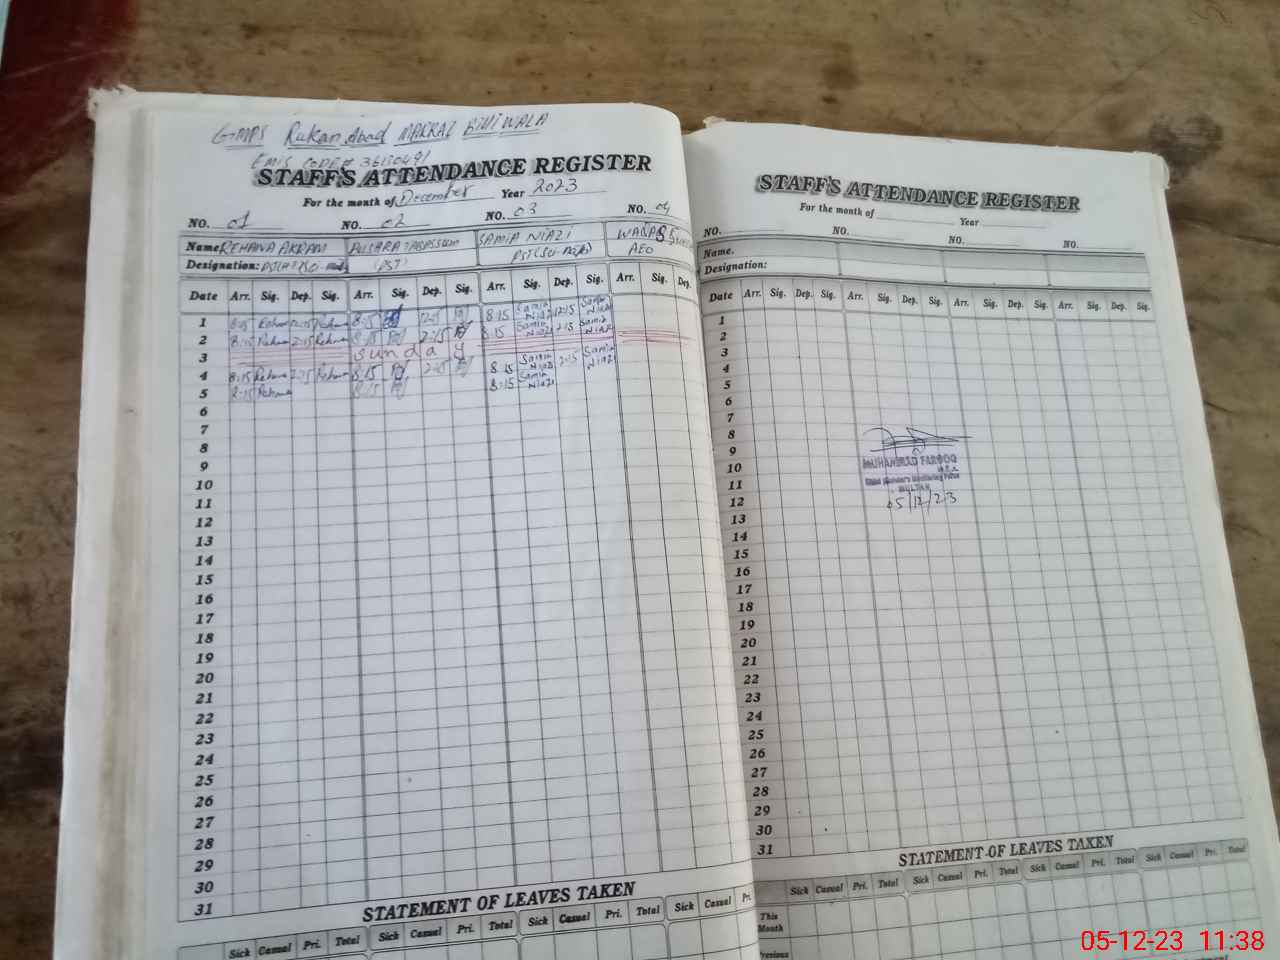 GMPS Rukan Abad MARKAZ BINIWALA
EMIS CODE# 36110491
STAFF'S ATTENDANCE REGISTER
For the month of December Year 2023
NO. 01 NO. 02 NO. 03 NO. 04
Name REHANA AKRAM BUSHRA TABASSUM SAMIA NIAZI
Designation: (PST) AEO
Date Arr. Sig. Dep. Sig. Arr. Sig. Dep. Sig. Arr. Sig. Dep. Sig. Arr. Sig. Dep.
1 8:15 Rehana 12:15 Rehana 8:15 12:15 8:15 Samia Niazi 12:15 Samia Niazi
2 8:15 Rehana 2:15 Rehana 8:15 2:15 8:15 Samia Niazi 2:15 Samia Niazi
3 Sunday
4 8:15 Rehana 2:15 Rehana 8:15 2:15 8:15 Samia Niazi 2:15 Samia Niazi
5 8:15 Rehana 8:15 8:15 Samia Niazi
6
7
8
9
10
11
12
13
14
15
16
17
18
19
20
21
22
23
24
25
26
27
28
29
30
31
STATEMENT OF LEAVES TAKEN
Sick Casual Pri. Total Sick Casual Pri. Total Sick Casual Pri.
STAFF'S ATTENDANCE REGISTER
For the month of Year
NO. NO. NO. NO.
Name.
Designation:
Date Arr. Sig. Dep. Sig. Arr. Sig. Dep. Sig. Arr. Sig. Dep. Sig. Arr. Sig. Dep. Sig.
1
2
3
4
5
6
7
8
9
10
11
12
13
14
15
16
17
18
19
20
21
22
23
24
25
26
27
28
29
30
31
MUHAMMAD FAROOQ
M.E.A
Chief Minister's Monitoring Force
MULTAN
05/12/23
STATEMENT OF LEAVES TAKEN
Sick Casual Pri. Total Sick Casual Pri. Total Sick Casual Pri. Total Sick Casual Pri. Total
This Month
Previous
05-12-23 11:38